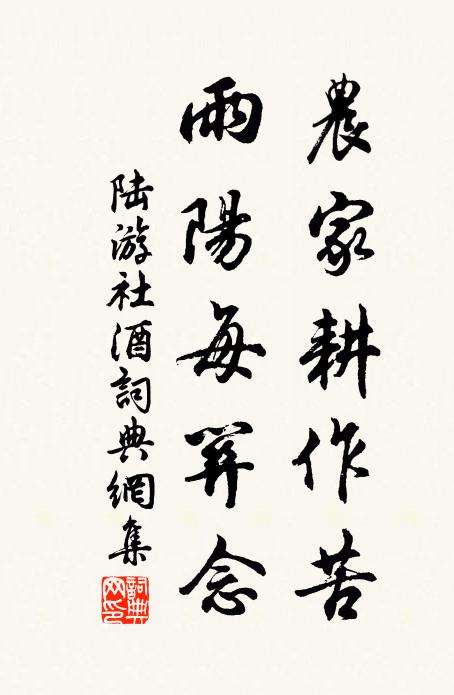 農家耕作苦
雨陽每關念
陆游社酒詞典網集
詞典网印